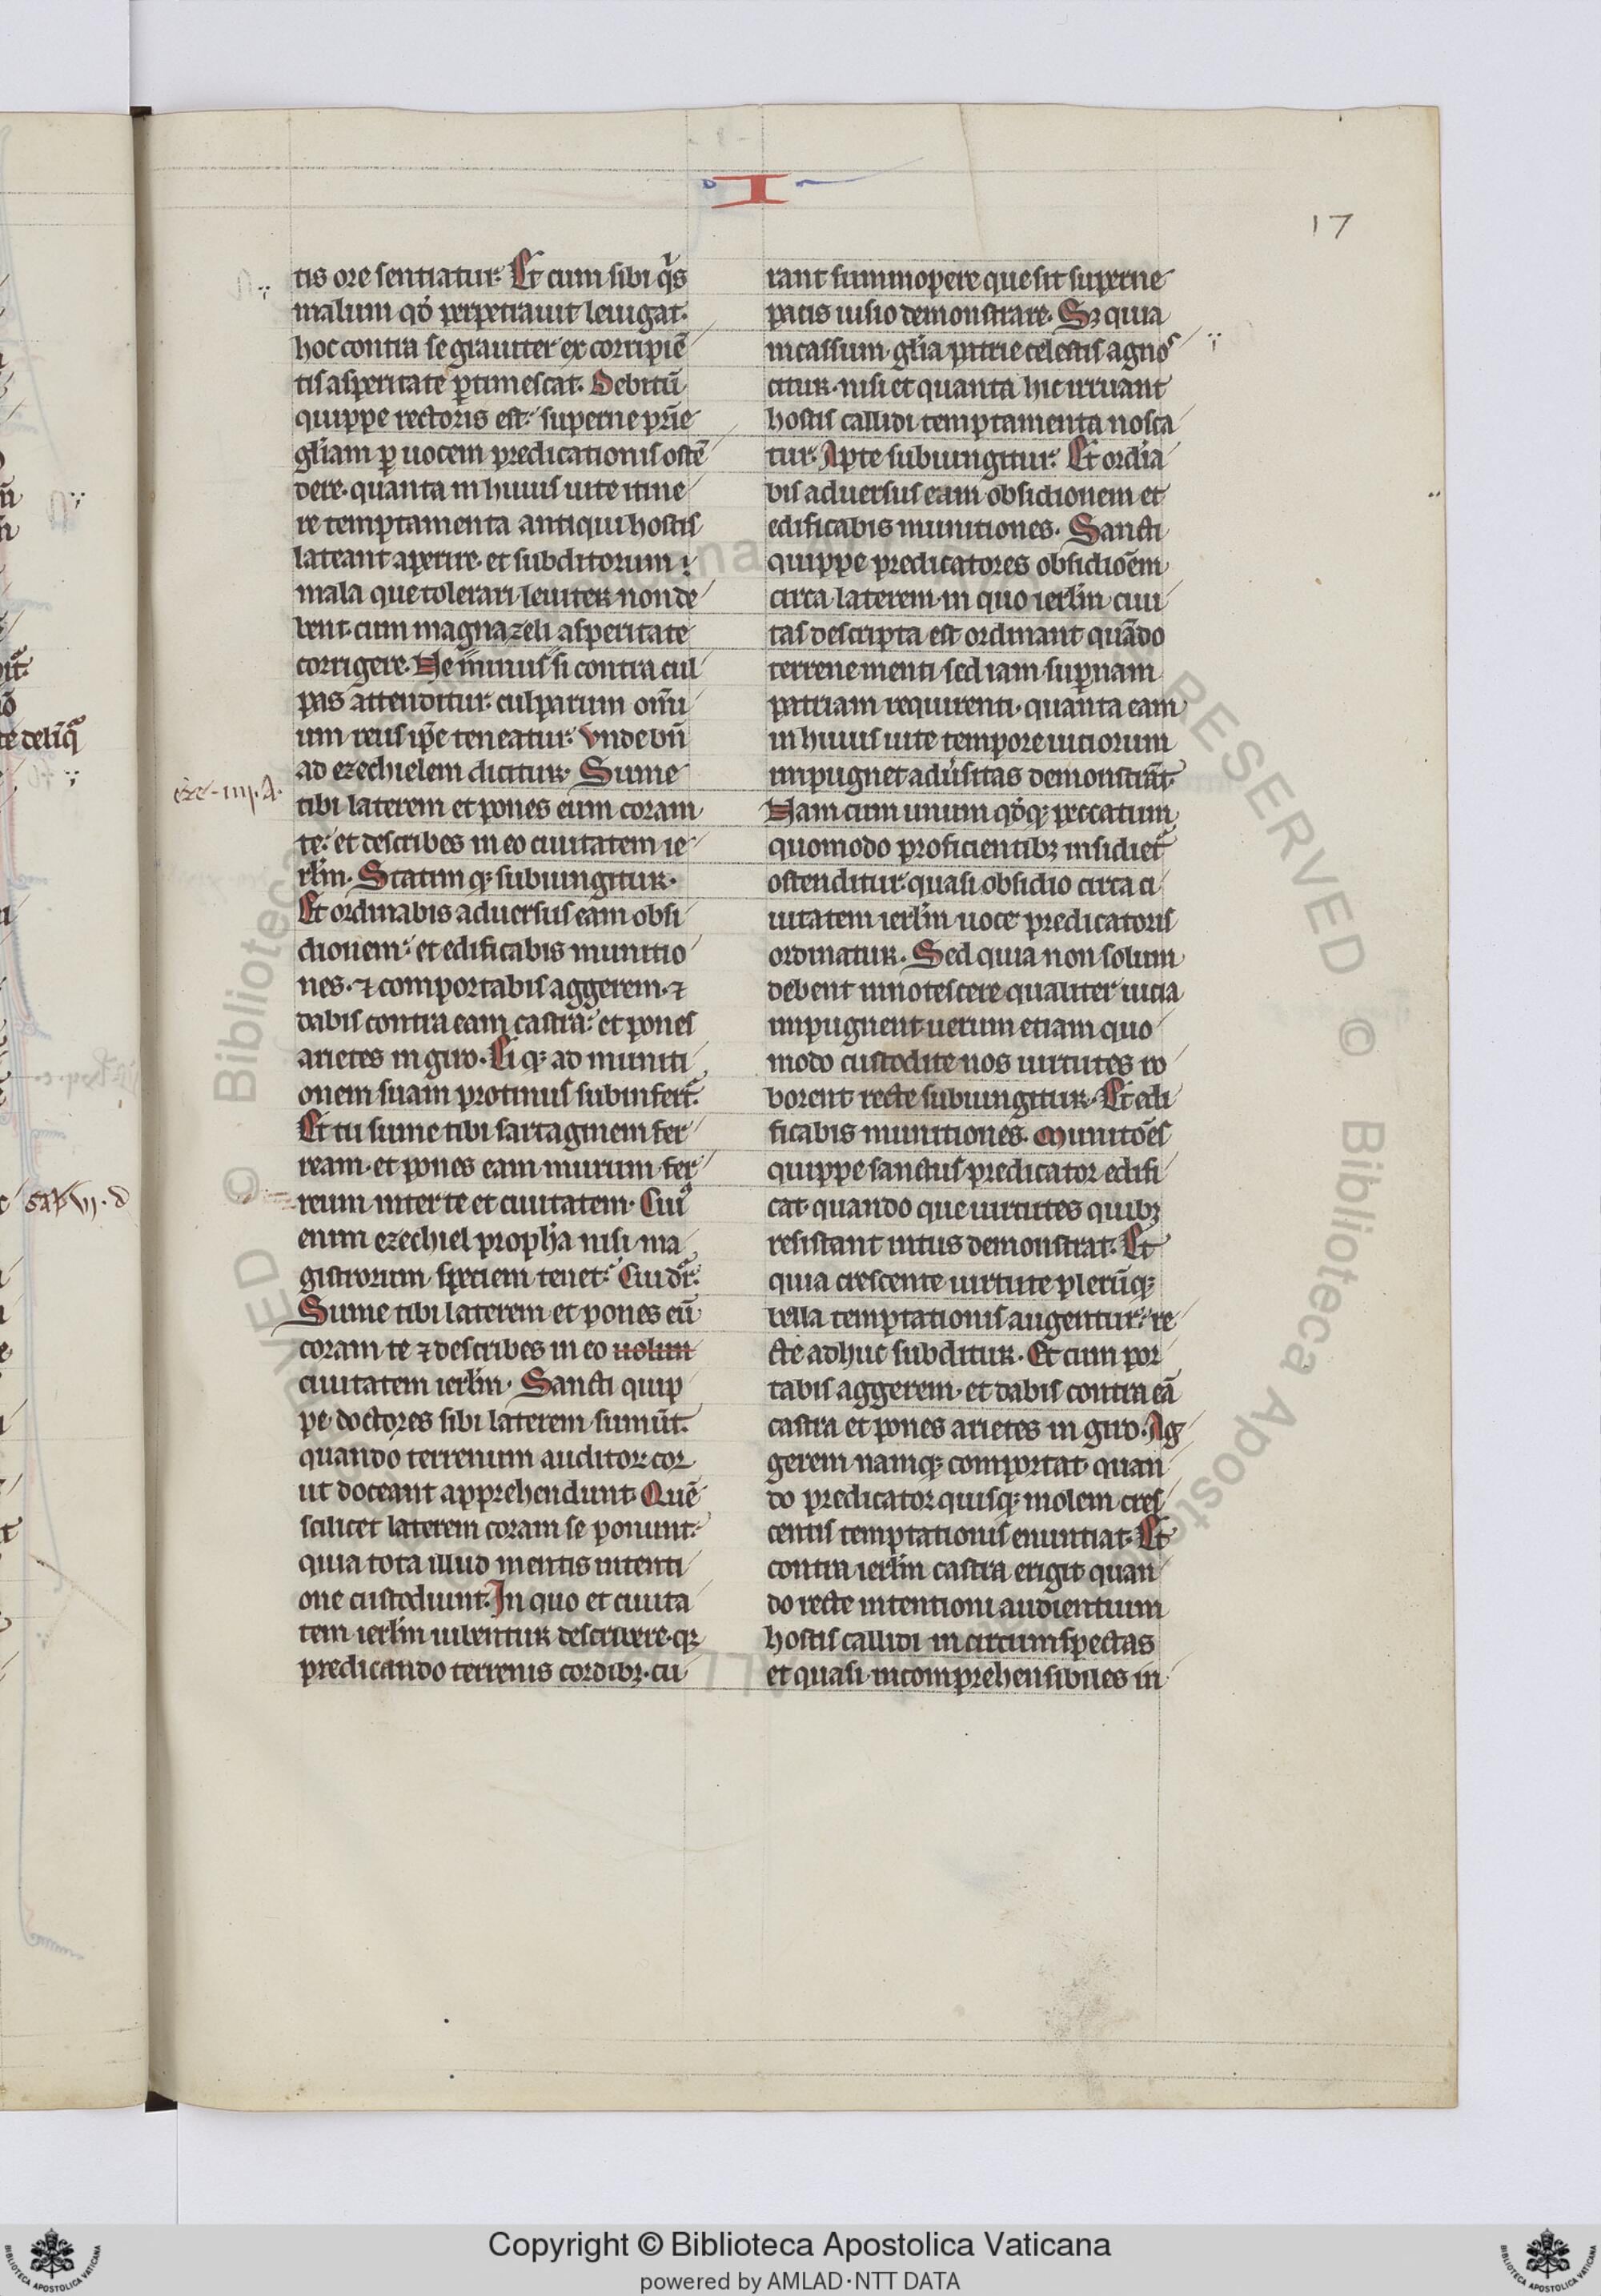 I
17
tis ore sentiatur. Et cum sibi q̇s
malum qđ perpetrauit leuigat.
hoc contra se grauiter ex corripiē
tis asperitate ꝑtimescat. Debitū
quippe rectoris est. superne pr̄ie
gl̄iam ꝑ uocem predicationis ostē
dere. quanta in huius uite itine
re temptamenta antiqui hostis
lateant aperire. et subditorum
mala que tolerari leuiter non de
bent. cum magna zeli asperitate
corrigere. Ne minus si contra cul
pas attenditur. culparum om̄i
um reus ip̄e teneatur. Vnde bn̄
ad ezechielem dicitur. Sume
eze. iiij. A.
tibi laterem et pones eum coram
te. et describes in eo ciuitatem ie
rlm̄. Statim qꝫ subiungitur.
Et ordinabis aduersus eam obsi
dionem. et edificabis munitio
nes. ⁊ comportabis aggerem. ⁊
dabis contra eam castra. et pones
arietes in giro. Ei qꝫ ad muniti
onem suam protinus subinfert.
Et tu sume tibi sartaginem fer
ream. et pones eam murum fer
reum inter te et ciuitatem. Cui᷒
enim ezechiel proph̄a nisi ma
gistrorum speciem tenet. Cui dr̄.
Sume tibi laterem et pones eū
coram te ⁊ describes in eo uolun
ciuitatem ierlm̄. Sancti quip
pe doctores sibi laterem sumūt.
quando terrenum auditor cor
ut doceant apprehendunt. Quē
scilicet laterem coram se ponunt.
quia tota illud mentis intenti
one custodiunt. In quo et ciuita
tem ierlm̄ iubentur describere. qꝫ
predicando terrenis cordibꝫ. cu
rant summopere que sit superne
pacis uisio demonstrare. Sꝫ quia
incassum gl̄ia patrie celestis agnos
citur. nisi et quanta hic irruant
hostis callidi temptamenta nosca
tur. Apte subiungitur. Et ordīa
bis aduersus eam obsidionem et
edificabis munitiones. Sancti
quippe predicatores obsidiōem
circa laterem in quo ierlm̄ ciui
tas descripta est ordinant quādo
terrene menti sed iam suꝑnam
patriam requirenti. quanta eam
in huius uite tempore uiciorum
impugnet adu̇sitas demonstrāt.
Nam cum unum qđqꝫ peccatum
quomodo proficientibꝫ insidiet᷑
ostenditur. quasi obsidio circa ci
uitatem ierlm̄ uoce predicatoris
ordinatur. Sed quia non solum
debent innotescere qualiter uicia
impugnent uerum etiam quo
modo custodite nos uirtutes ro
borent recte subiungitur. Et edi
ficabis munitiones. Munitōes
quippe sanctus predicator edifi
cat. quando que uirtutes quibꝫ
resistant uitiis demonstrat. Et
quia crescente uirtute plerūqꝫ
bella temptationis augentur. re
cte adhuc subditur. Et cum por
tabis aggerem. et dabis contra eā
castra et pones arietes in giro. Ag
gerem namqꝫ comportat. quan
do predicator quisqꝫ molem cres
centis temptationis enuntiat. Et
contra ierlm̄ castra erigit quan
do recte intentioni audientium
hostis callidi in circumspectas
et quasi incomprehensibiles in
te deliq᷑
sap̄ vj. d
Copyright © Biblioteca Apostolica Vaticana
powered by AMLAD·NTT DATA